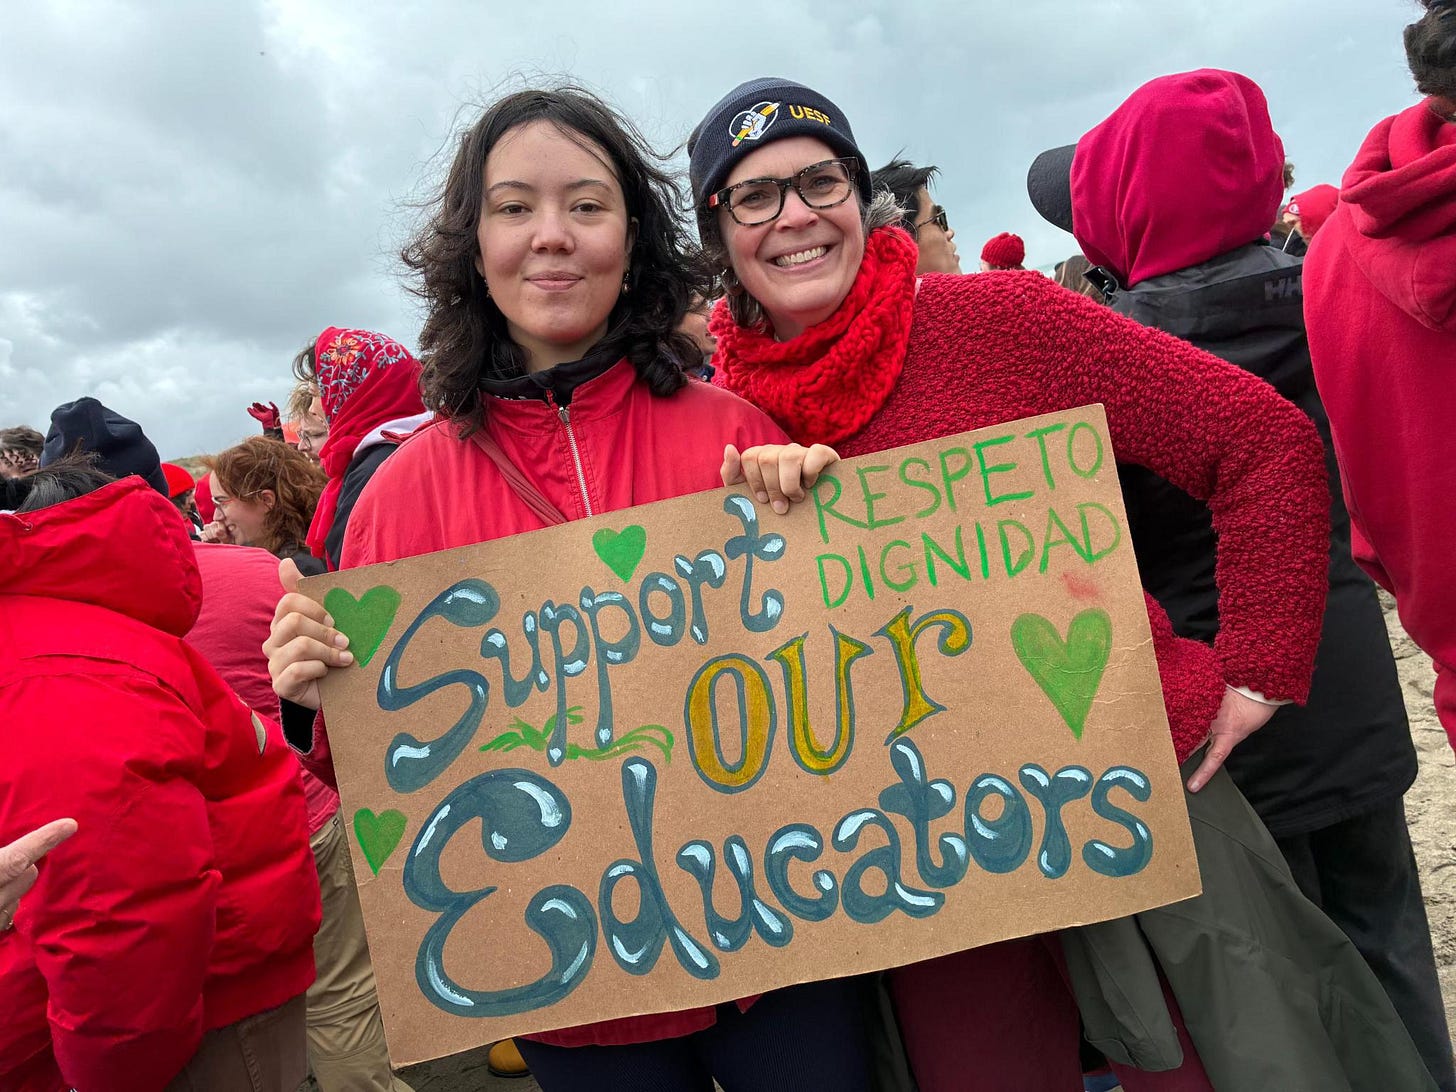 UESF
RESPETO
DIGNIDAD
Support
OUr
Educators
HH